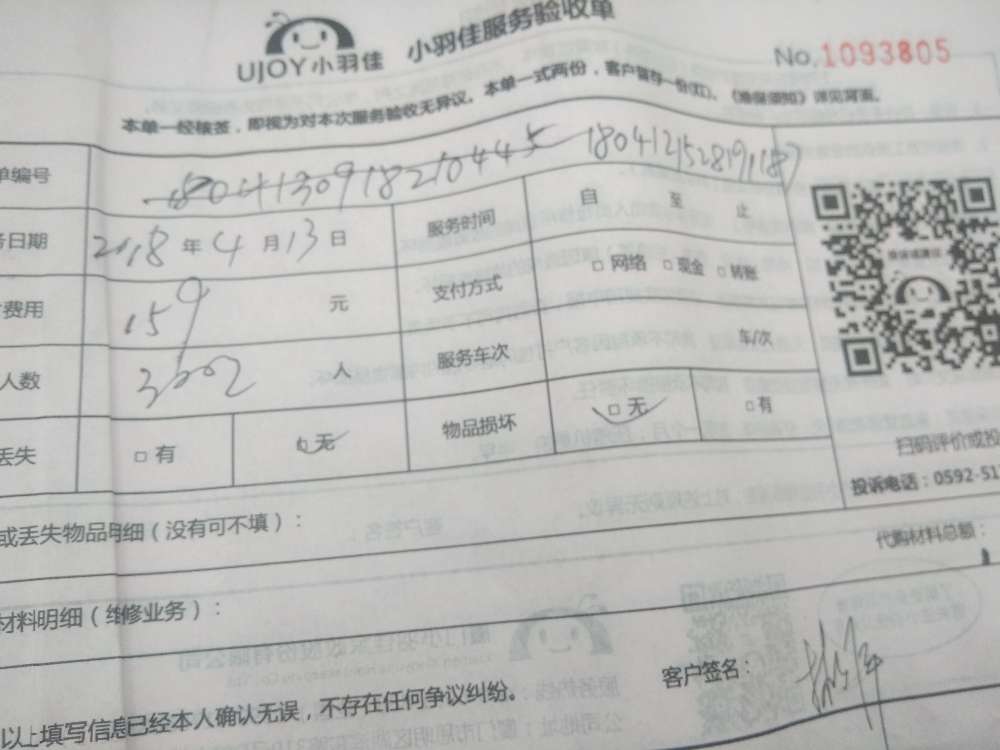 UJOY小羽佳 小羽佳服务验收单
No.1093805
本单一经核签,即视为对本次服务验收无异议。本单一式两份,客户留存一份(红)。《维保须知》详见背面。
单编号 1804130918210445 180412152819118
务日期 2018 年 4 月 13 日 服务时间 自 至 止
费用 159 元 支付方式 □ 网络 □ 现金 □ 转账
人数 人 服务车次 车/次
丢失 □ 有 □ 无 物品损坏 □ 无 □ 有
扫码评价或投
投诉电话:0592-51
或丢失物品明细(没有可不填):
代购材料总额:
材料明细(维修业务):
客户签名:
以上填写信息已经本人确认无误,不存在任何争议纠纷。